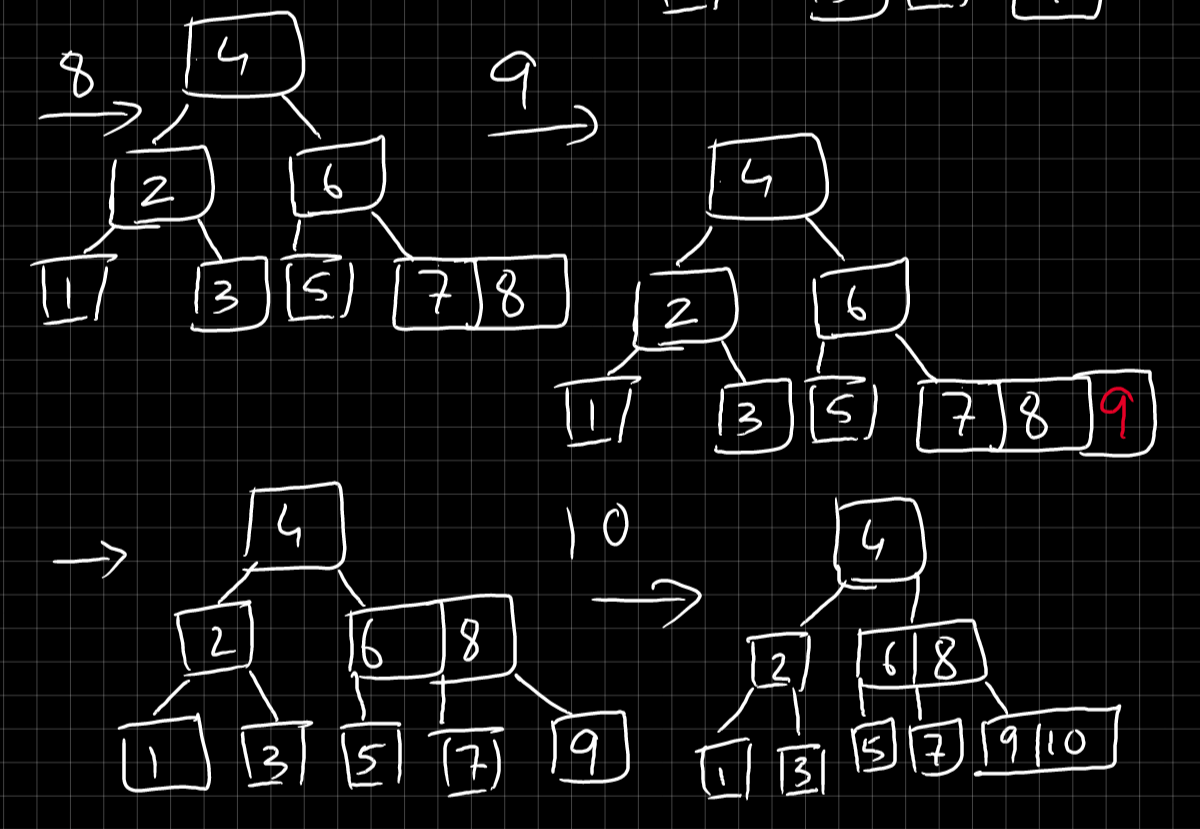 8
4
9
2 6
1 3 5 7 8
4
2 6
1 3 5 7 8 9
4
2 6 8
1 3 5 7 9
10
4
2 6 8
1 3 5 7 9 10